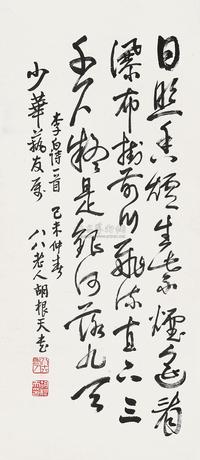 日照香爐生紫煙遙看
瀑布掛前川飛流直下三
千尺疑是銀河落九天
李白詩一首 己未仲春
少華藝友屬 八八老人胡根天書